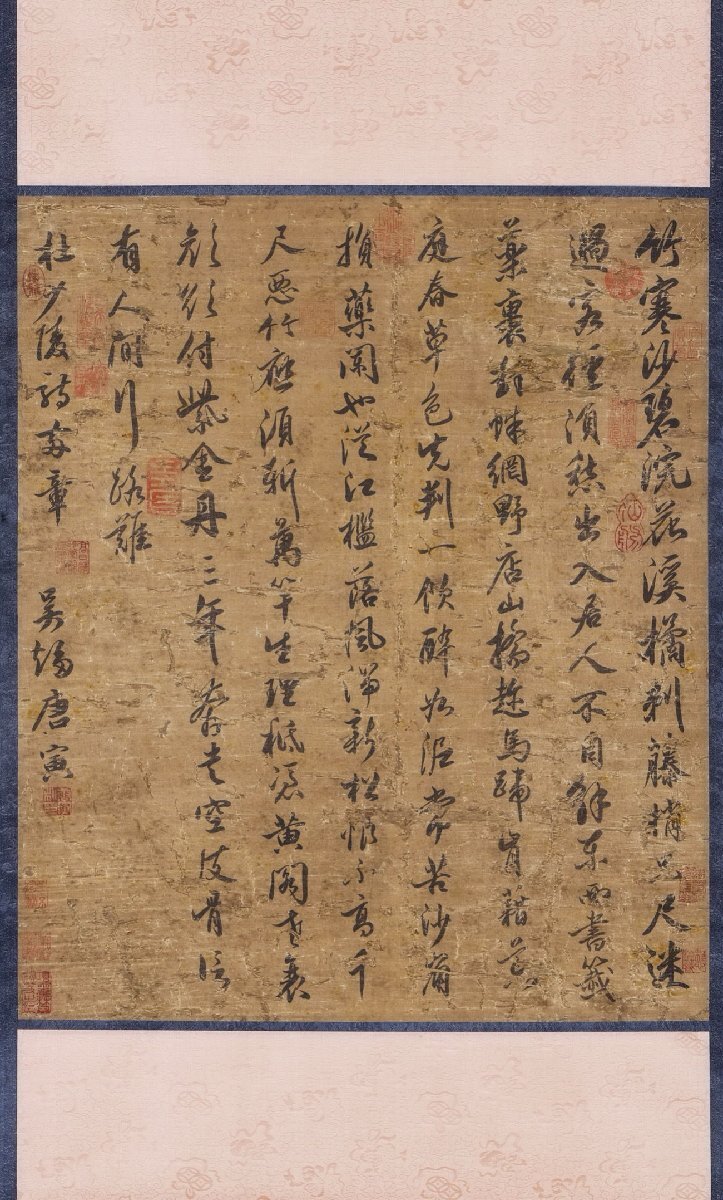 竹寒沙碧浣花溪橘刺藤梢咫尺迷
過客徑須愁出入居人不自解東西書籤
藥裹封蛛網野店山橋趂馬蹄肯藉荒
庭春草色先判一飲醉如泥常苦沙崩
損藥闌也從江檻落風湍新松恨不高千
尺惡竹應須斬萬竿生理秪憑黃閣老衰
顏欲付紫金丹三年奔走空皮骨信
有人間行路難
杜少陵詩兩章 吳趨唐寅